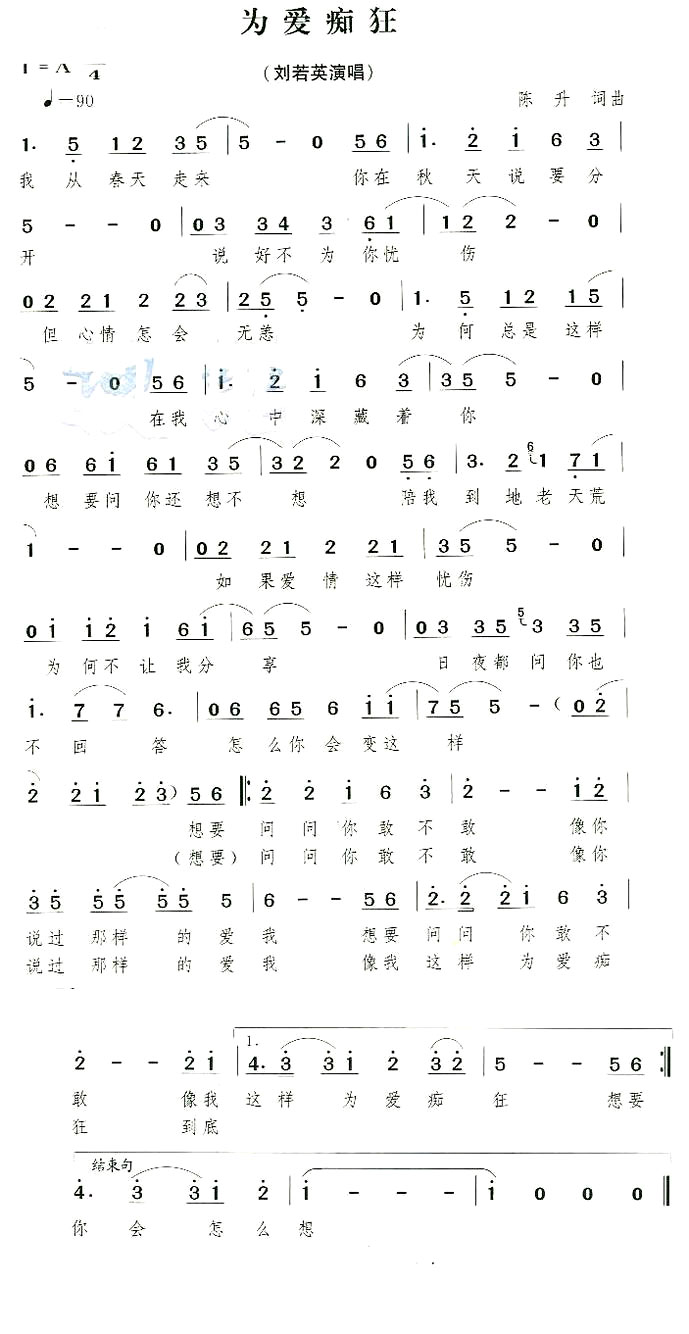 为爱痴狂
(刘若英演唱)
♩=90
陈升 词曲
1. 5 12 35 | 5 - 0 56 | 1. 2 1 6 3 |
我从春天走来 你在秋天说要分
5 - - 0 | 03 34 3 61 | 12 2 - 0 |
开 说好不为你忧伤
02 21 2 23 | 25 5 - 0 | 1. 5 12 15 |
但心情怎会无恙 为何总是这样
5 - 0 56 | 1. 2 1 6 3 | 35 5 - 0 |
在我心中深藏着你
06 61 61 35 | 32 2 0 56 | 3. 2 6 1 71 |
想要问你还想不想 陪我到地老天荒
1 - - 0 | 02 21 2 21 | 35 5 - 0 |
如果爱情这样忧伤
01 12 1 61 | 65 5 - 0 | 03 35 5 3 35 |
为何不让我分享 日夜都问你也
1. 7 7 6. | 06 65 6 11 | 75 5 - (02 |
不回答 怎么你会变这样
2 21 23) 56 |: 2 2 1 6 3 | 2 - - 12 |
想要问问你敢不敢 像你
(想要)问问你敢不敢 像你
35 55 55 5 | 6 - - 56 | 2. 2 21 6 3 |
说过那样的爱我 想要问问你敢不
说过那样的爱我 像我这样为爱痴
1.
2 - - 21 | 4. 3 31 2 32 | 5 - - 56 :|
敢 像我这样为爱痴狂 想要
狂 到底
结束句
4. 3 31 2 | 1 - - - | 1 0 0 0 ‖
你会怎么想